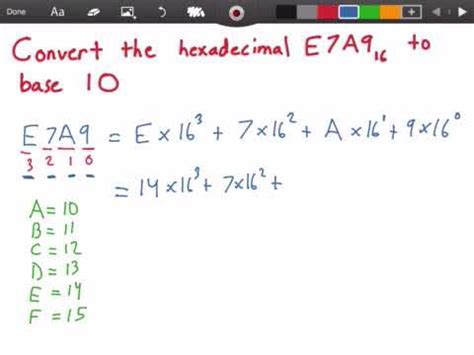 Done
Convert the hexadecimal E7A9₁₆ to
base 10
E7A9 = E×16³ + 7×16² + A×16¹ + 9×16⁰
3 2 1 0
= 14×16³ + 7×16² +
A = 10
B = 11
C = 12
D = 13
E = 14
F = 15